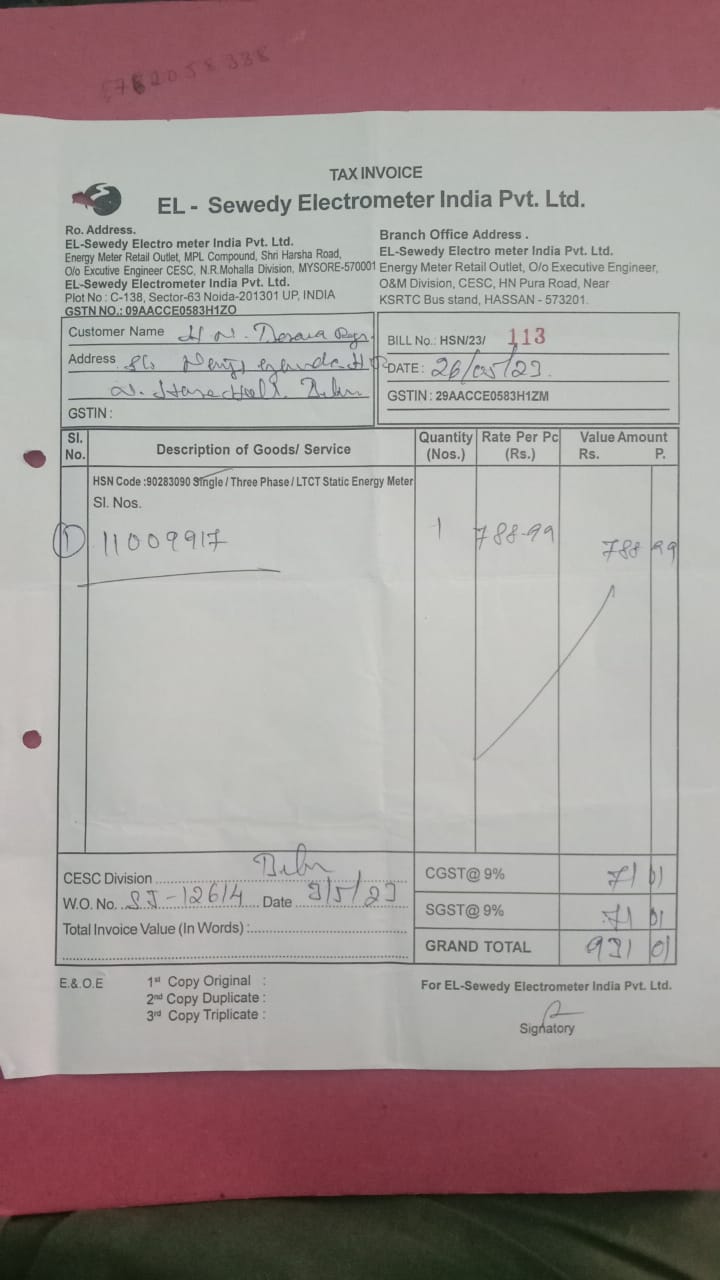 5782058338
TAX INVOICE
EL - Sewedy Electrometer India Pvt. Ltd.
Ro. Address.
EL-Sewedy Electro meter India Pvt. Ltd.
Energy Meter Retail Outlet, MPL Compound, Shri Harsha Road,
O/o Excutive Engineer CESC, N.R.Mohalla Division, MYSORE-570001
EL-Sewedy Electrometer India Pvt. Ltd.
Plot No : C-138, Sector-63 Noida-201301 UP, INDIA
GSTN NO.: 09AACCE0583H1ZO
Branch Office Address .
EL-Sewedy Electro meter India Pvt. Ltd.
Energy Meter Retail Outlet, O/o Executive Engineer,
O&M Division, CESC, HN Pura Road, Near
KSRTC Bus stand, HASSAN - 573201.
Customer Name H N.
Address S/o
GSTIN :
BILL No.: HSN/23/ 113
DATE : 26/05/23.
GSTIN : 29AACCE0583H1ZM
Sl. No. Description of Goods/ Service Quantity (Nos.) Rate Per Pc (Rs.) Value Amount Rs. P.
HSN Code :90283090 Single / Three Phase / LTCT Static Energy Meter
Sl. Nos.
1 11009917 1 788-99 788 99
CESC Division
W.O. No. SJ-12614 Date 3/5/23
Total Invoice Value (In Words) :
CGST@ 9% 71 01
SGST@ 9% 71 01
GRAND TOTAL 931 01
E.& O.E 1st Copy Original :
2nd Copy Duplicate :
3rd Copy Triplicate :
For EL-Sewedy Electrometer India Pvt. Ltd.
Signatory